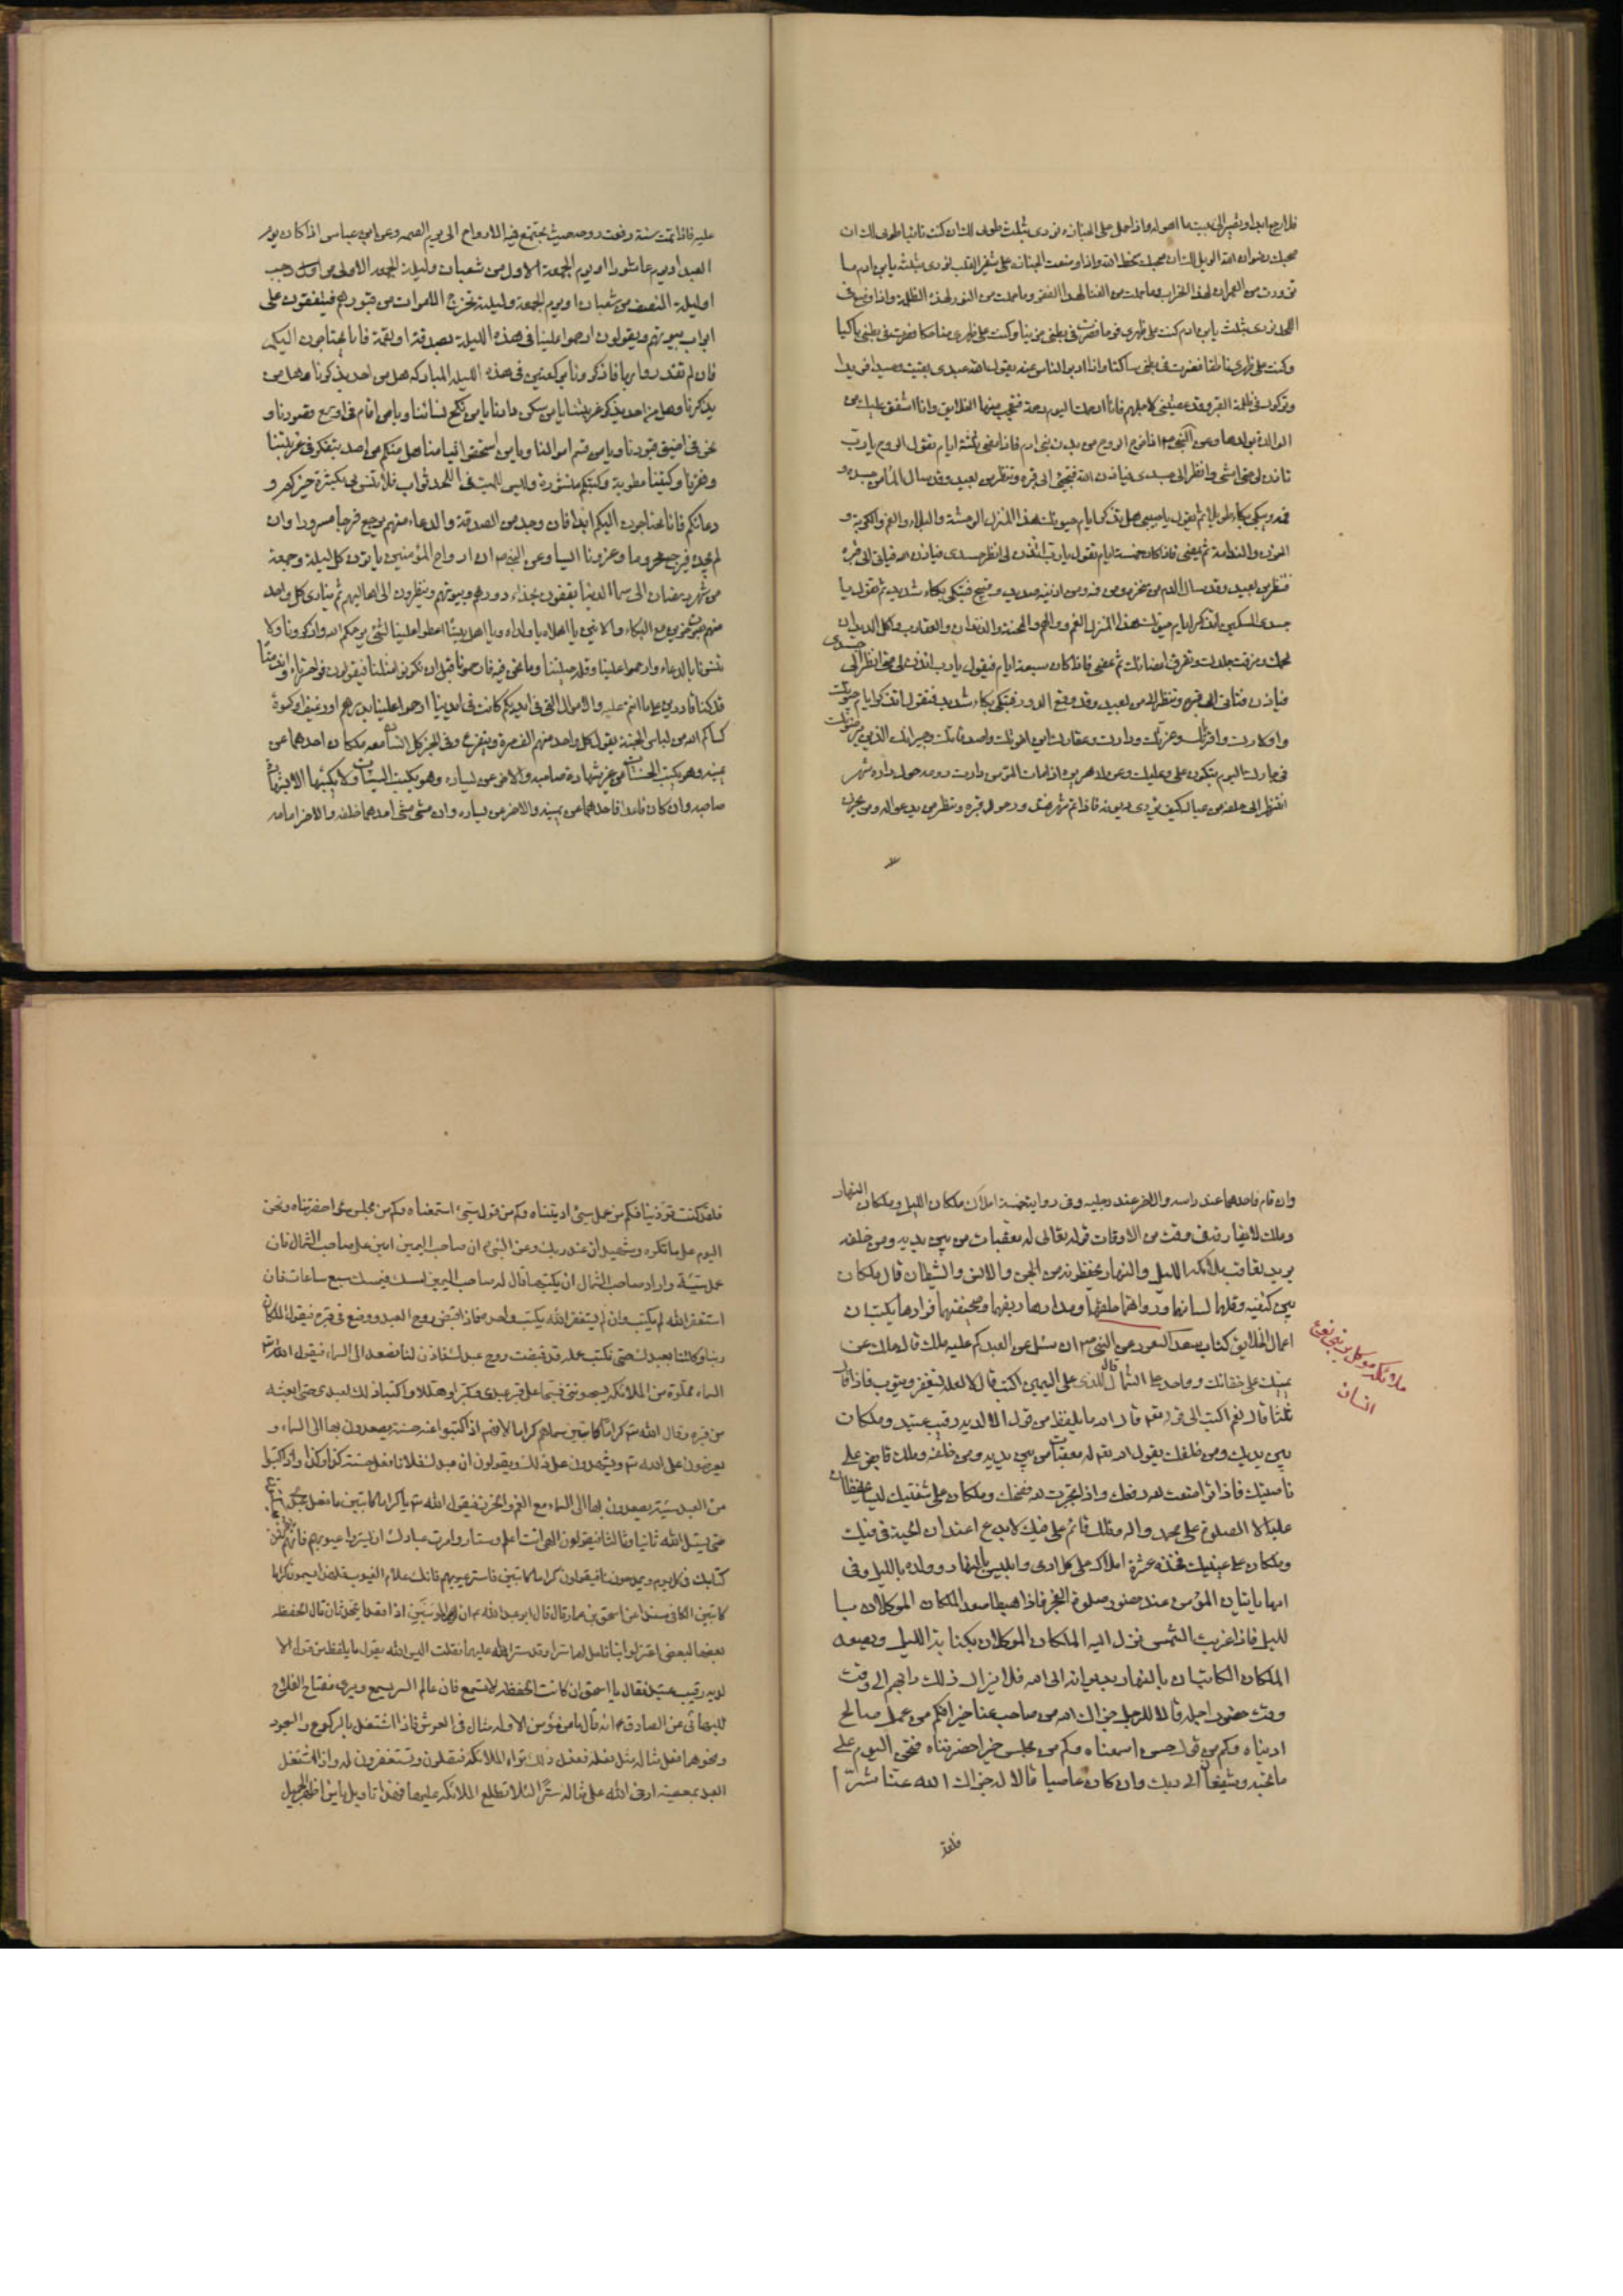 فلا ارجع ابدا ونصير الى بيت ما اهوله واذا حمل على الجنازة نودى بثلث طوبى لك ان كنت تائبا طوبى لك ان
صحبك رضوان الله الويل لك ان صحبك سخط الله واذا وضعت الجنازة على شفير القبر نودى بثلثة يابن ادم ما
تزودت من العمران لهذا الخراب وما حملت من الغنا لهذا الفقر وما حملت من النور لهذه الظلمة واذا وضع فى
اللحد نودى بثلث يابن ادم كنت على ظهرى فرحا فصرت فى بطنى حزينا وكنت على ظهرى ضاحكا فصرت فى بطنى باكيا
وكنت على ظهرى ناطقا فصرت فى بطنى ساكتا واذا ادبر الناس عنه يقول الله عبدى بقيت وحيدا فريدا
وتركوك فى ظلمة القبر وقد عصيتنى لاجلهم فانا ارحمك اليوم رحمة فتعجب منها الخلايق وانا اشفق عليك من
الوالدة بولدها وعن النبى ص اذا خرج الروح من بدن بنى ادم فاذا مضى ثلثة ايام تقول الروح يا رب
تاذن لى حتى امشى وانظر الى جسدى فياذن الله فتجئ الى قبره وتنظر من بعيد وقد سال الماء من جسده و
فمه ويبكى بكاء طويلا ثم يقول يا حبيبى هل تذكر ايام حيوتك هذا المنزل الوحشة والبلاء والغم والكربة و
الحزن والندامة ثم يمضى فاذا كان خمسة ايام تقول يا رب ائذن لى انظر جسدى فياذن الله فياتى الى قبره
فتنظر من بعيد وقد سال الدم من منخره ومن فمه ومن اذنيه صديد وقيح فتبكى بكاء شديد ثم تقول يا
جسدى المسكين اتذكر ايام حيوتك هذا المنزل الغم والهم والمحنة والديدان والعقارب واكل الديدان
لحمك ومزقت جلدك وتفرق اعضائك ثم يمضى فاذا كان سبعة ايام فيقول يا رب ائذن لى حتى انظر الى جسدى
فياذن فتاتى الى قبره وتنظر اليه من بعيد وقد وقع الدود فتبكى بكاء شديد فتقول اتذكر ايام حيوتك
واولادك واقربائك وعزتك ودارك وعقارك اين اخوتك واصدقائك وجيرانك الذين يرضون
فى جارك اليوم يبكون على وعليك وعن ابى هريرة اذا مات المؤمن دارت روحه حول داره شهر
انتظر الى خلفه من عياله كيف يؤدى ديونه فاذا تم شهر ردت حول قبره وتنظر من يدعو له ومن يحزن
عليه فاذا تمت سنة رفعت روحه حيث يجتمع فيه الارواح الى يوم القيمه وعن ابن عباس اذا كان يوم
العيد او يوم عاشورا او يوم الجمعة الاول من شعبان وليلة الجمعه الاولى من اول رجب
او ليلة النصف من شعبان او يوم الجمعة وليلة تخرج الاموات من قبورهم فيقفون على
ابواب بيوتهم ويقولون ارحموا علينا فى هذه الليلة بصدقة او لقمة فانا محتاجون اليكم
فان لم تقدروا بها فاذكرونا بركعتين فى هذه الليله المباركه هل من احد يذكرنا هل من
يذكرنا وهل من احد يذكر غربتنا يا من سكن دارنا يا من نكح نسائنا ويا من اقام فى اوسع قصورنا و
نحن فى اضيق قبورنا ويا من قسم اموالنا ويا من استحقر ايتامنا هل منكم من احد يتفكر فى غربتنا
وفقرنا وكتبنا مطوية وكتبكم منشورة وليس للميت فى اللحد ثواب فلا تنسونى بكثرة خيركم و
دعائكم فانا محتاجون اليكم ابدا فان وجد من الصدقة والدعاء منهم يرجع فرحا مسرورا وان
لم يجد فيرجع محروما ومحزونا السيا وعن النبى ص ان ارواح المؤمنين ياتون كل ليلة وجمعة
من شهر رمضان الى سماء الدنيا يقفون بحذاء دورهم وبيوتهم وينظرون الى اهاليهم ثم ينادى كل واحد
منهم بصوت حزين مع البكاء والانين يا اهلاه يا ولداه ويا اهل بيتنا اعطوا علينا بشئ يرحمكم الله واذكرونا ولا
تنسونا بالدعاء وارحموا علينا وقلة حيلتنا وما نحن فيه فارحمونا قبل ان تكونوا مثلنا فيقولون واحسرتاه واندامتا
قد كنا قادرين على ما انتم عليه والاموال التى فى ايديكم كانت فى ايدينا ارحموا علينا بدرهم او رغيف او كسوة
كساكم الله من لباس الجنة يقول كل واحد منهم القصة ويتفرع وفى الخبر كل انسان معه ملكان احدهما عن
يمينه وهو يكتب الحسنات من غير شهادة صاحبه والاخر عن يساره وهو يكتب السيئات ولا يكتبها الا بشهادة
صاحبه وان كان قاعدا فاحدهما عن يمينه والاخر عن يساره وان مشى مشى احدهما خلفه والاخر امامه
وان قام فاحدهما عند راسه والاخر عند رجليه وفى رواية خمسة املاك ملكان الليل وملكان النهار
وملك لا يفارقه فى وقت من الاوقات قوله تعالى له معقبات من بين يديه ومن خلفه
يريد تعاقب ملائكه الليل والنهار يحفظونه من الجن والانس والشيطان قال ملكان
بين كتفيه وقلمهما لسانهما ودواتهما حلقهما ومدادهما ريقهما وصحيفتهما فؤادهما يكتبان
اعمال الخلايق كتاب سعد السعود عن النبى ص ان سئل عن العبد كم عليه ملك قال ملك عن
يمينك على حسناتك وواحد على الشمال قال للذى على اليمين اكتب قال لا لعله يستغفر ويتوب فاذا قال
ثلثا قال نعم اكتب الى قوله تعم قال الله ما يلفظ من قول الا لديه رقيب عتيد وملكان
بين يديك ومن خلفك يقول الله تعم له معقبات من بين يديه ومن خلفه وملك قابض على
ناصيتك فاذا تواضعت لله رفعك واذا تجبرت لله فضحك وملكان على شفتيك ليس يحفظان
عليك الا الصلوة على محمد واله وملك قائم على فيك لا يدع اعند ان الحية فى فيك
وملكان على عينيك فهذه عشرة املاك على كل ادمى وابليس بالنهار وولده بالليل وفى
انهما ياتيان المؤمن عند حضور صلوة الفجر فاذا هبطا صعد الملكان الموكلان با
لليل فاذا غربت الشمس نزل اليه الملكان الموكلان بكتابة الليل ويصعد
الملكان الكاتبان بالنهار بديوانه الى الله فلا يزال ذلك دابهم الى وقت
وقت حضور اجله قالا للرجل جزاك الله من صاحب عنا خيرا فكم من عمل صالح
اريناه وكم من قول حسن اسمعناه وكم من مجلس خير احضرتناه فنحن اليوم على
ما تحبه وشفيعان الى ربك وان كان عاصيا قالا له جزاك الله عنا شرا
فلقد
ملائكه موكل بر بنى نوع
انسان
فلقد كنت تؤذينا فكم من عمل سئ اريتناه وكم من قول سئ اسمعتناه وكم من مجلس سوء احضرتناه ونحن
اليوم على ما تكره وشهيدان عند ربك وعن النبى ان صاحب اليمين امين على صاحب الشمال فان
عمل سيئة واراد صاحب الشمال ان يكتبها قال له صاحب اليمين امسك فيمسك سبع ساعات فان
استغفر الله لم يكتب وان لم يستغفر الله يكتب واحده فاذا قبض روح العبد ووضع فى قبره فيقول الملكان
ربنا وكلتنا بعبدك حتى نكتب عمله قد قبضت روح عبدك فاذن لنا نصعد الى السماء فيقول الله تم
السماء مملوة من الملائكه يسبحوننى فسبحا على قبر عبدى وكبرا وهللا واكتبا ذلك لعبدى حتى ابعثه
من قبره وقال الله تم كراما كاتبين سماهم كراما لانهم اذا كتبوا عنه حسنة يصعدون بها الى السماء و
يعرضون على الله تم ويشهدون على ذلك ويقولون ان عبدك فلانا فعل حسنة كذا وكذا واذا كتبوا
من العبد سيئة يصعدون بها الى السماء مع الغم والحزن فيقول الله تم يا كراما كاتبين ما فعل عبدى
حتى يسئل الله ثانيا وثالثا فيقولون الهى انت اعلم وستار وامرت عبادك ان يستروا عيوبهم فانهم يقرؤن
كتابك فى كل يوم ويمدحوننا فيقولون كراما كاتبين فاستر عيوبهم فانك علام الغيوب فلهذا يسمون كراما
كاتبين الكافى مسندا عن اسحق بن عمار قال قال ابو عبد الله ع ان المؤمنين اذا قعدا يتحدثان قال الحفظه
بعضها لبعض اعتزلوا بنا فلعل لهما سرا وقد ستر الله عليهما فقلت اليس الله يقول ما يلفظ من قول الا
لديه رقيب عتيد فقال يا اسحق ان كانت الحفظه لا تسمع فان عالم السر يسمع ويرى مفتاح الفلاح
للبهائى عن الصادق ع انه قال ما من مؤمن الا وله مثال فى العرش فاذا اشتغل بالركوع والسجود
ونحوهما فعل مثاله مثل فعله فعند ذلك تراه الملائكه فيصلون ويستغفرون له واذا اشتغل
العبد بمعصية ارخى الله على مثاله سترا لئلا تطلع الملائكه عليها فهذا تاويل يا من اظهر الجميل